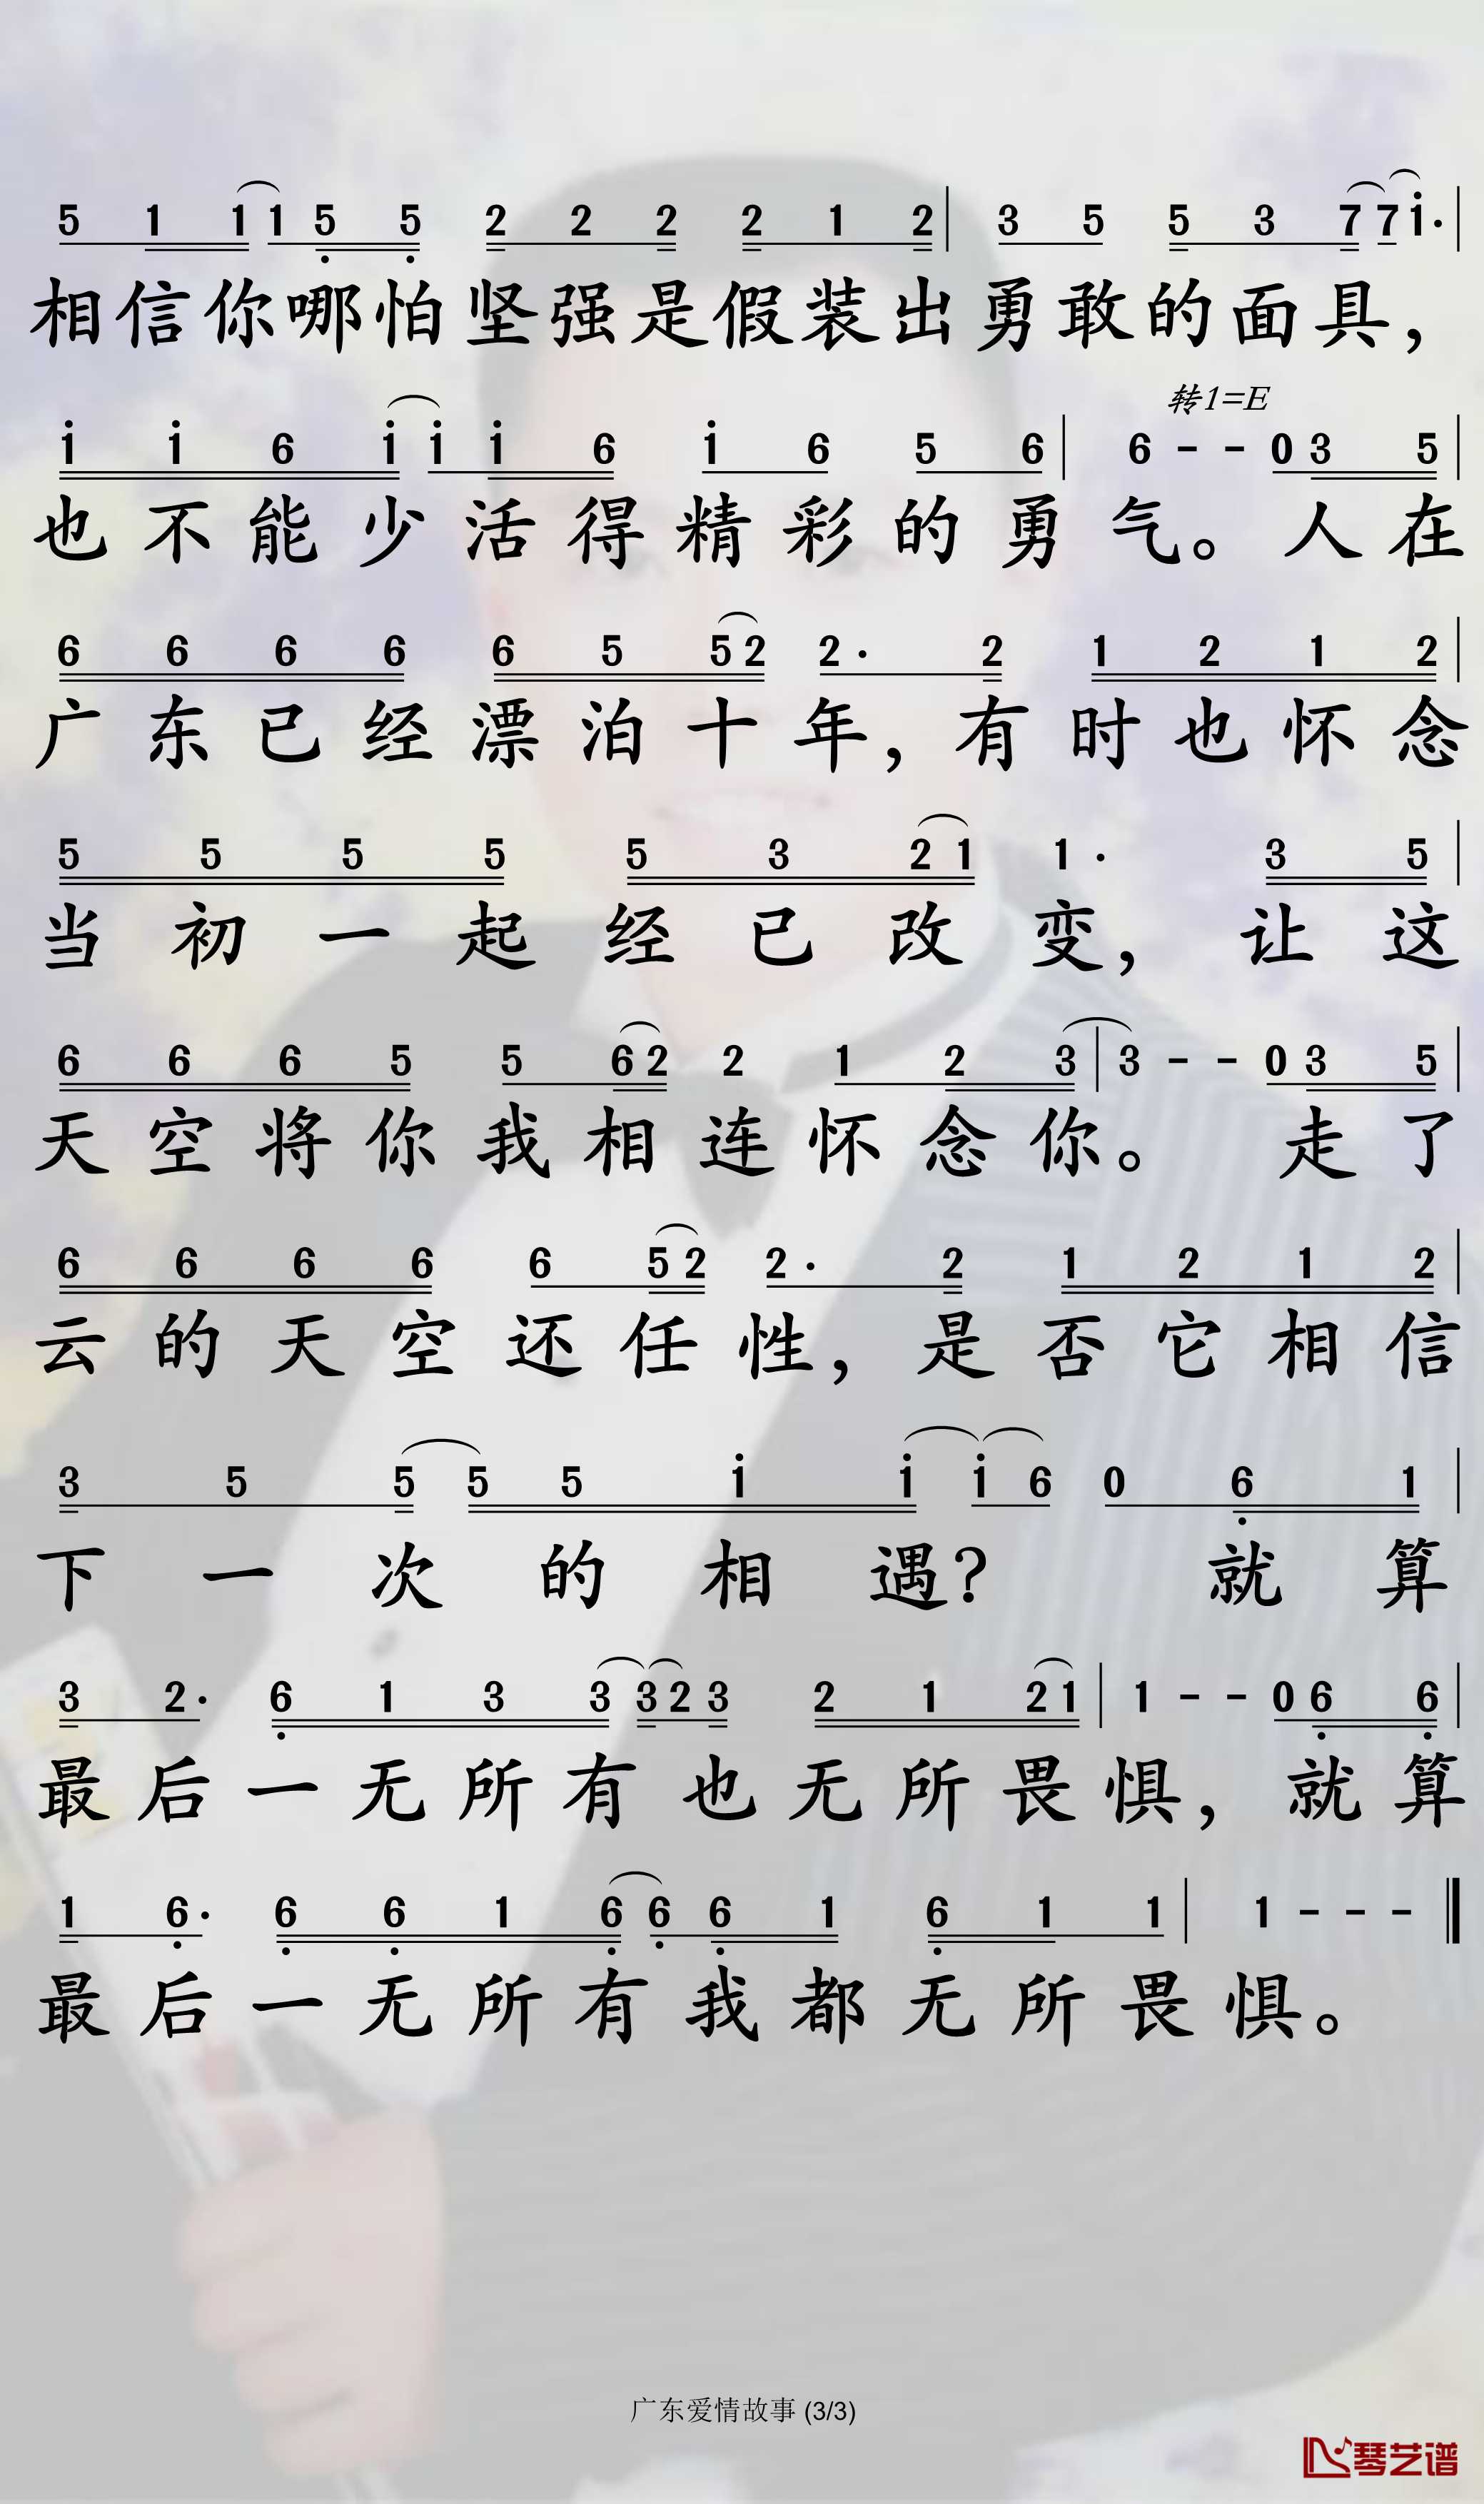 5 1 1 1 5 5 2 2 2 2 1 2 | 3 5 5 3 7 7 1· |
相信你哪怕坚强是假装出勇敢的面具，
转1=E
1 1 6 1 1 1 6 1 6 5 6 | 6 - - 0 3 5 |
也不能少活得精彩的勇气。人在
6 6 6 6 6 5 5 2 2· 2 1 2 1 2 |
广东已经漂泊十年，有时也怀念
5 5 5 5 5 3 2 1 1· 3 5 |
当初一起经已改变，让这
6 6 6 5 5 6 2 2 1 2 3 | 3 - - 0 3 5 |
天空将你我相连怀念你。走了
6 6 6 6 6 5 2 2· 2 1 2 1 2 |
云的天空还任性，是否它相信
3 5 5 5 5 1 1 1 6 0 6 1 |
下一次的相遇？就算
3 2· 6 1 3 3 3 2 3 2 1 2 1 | 1 - - 0 6 6 |
最后一无所有也无所畏惧，就算
1 6· 6 6 1 6 6 6 1 6 1 1 | 1 - - - ‖
最后一无所有我都无所畏惧。
广东爱情故事 (3/3)
琴艺谱